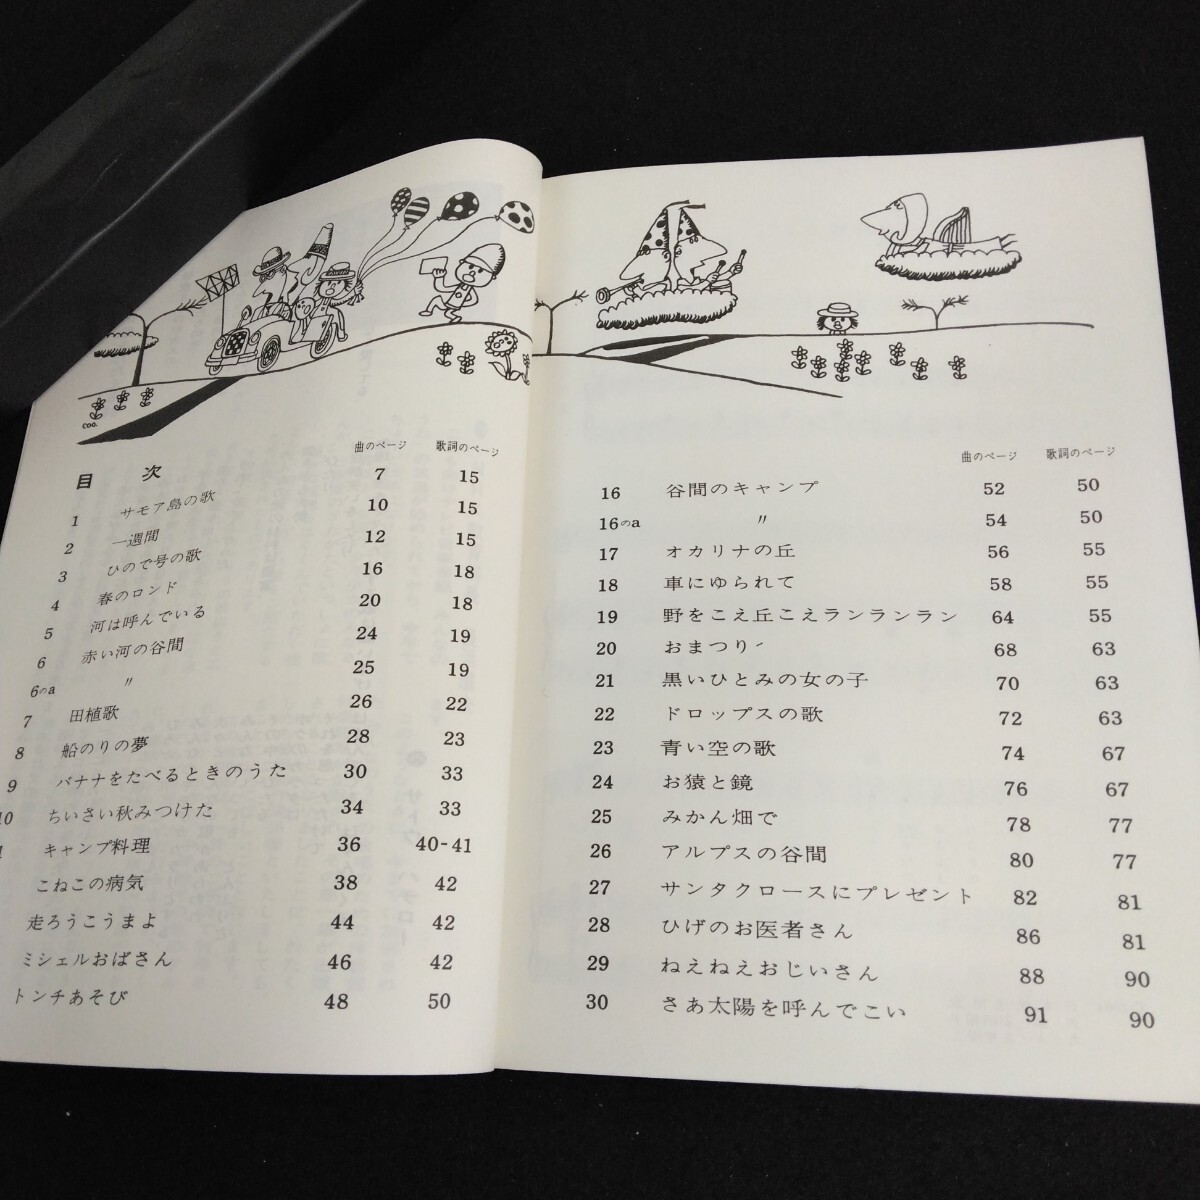 coo.
曲のページ 歌詞のページ
目 次
1 サモア島の歌 7 15
2 一週間 10 15
3 ひので号の歌 12 15
4 春のロンド 16 18
5 河は呼んでいる 20 18
6 赤い河の谷間 24 19
6のa 〃 25 19
7 田植歌 26 22
8 船のりの夢 28 23
9 バナナをたべるときのうた 30 33
10 ちいさい秋みつけた 34 33
1 キャンプ料理 36 40-41
こねこの病気 38 42
走ろうこうまよ 44 42
ミシェルおばさん 46 42
トンチあそび 48 50
曲のページ 歌詞のページ
16 谷間のキャンプ 52 50
16のa 〃 54 50
17 オカリナの丘 56 55
18 車にゆられて 58 55
19 野をこえ丘こえランランラン 64 55
20 おまつり 68 63
21 黒いひとみの女の子 70 63
22 ドロップスの歌 72 63
23 青い空の歌 74 67
24 お猿と鏡 76 67
25 みかん畑で 78 77
26 アルプスの谷間 80 77
27 サンタクロースにプレゼント 82 81
28 ひげのお医者さん 86 81
29 ねえねえおじいさん 88 90
30 さあ太陽を呼んでこい 91 90